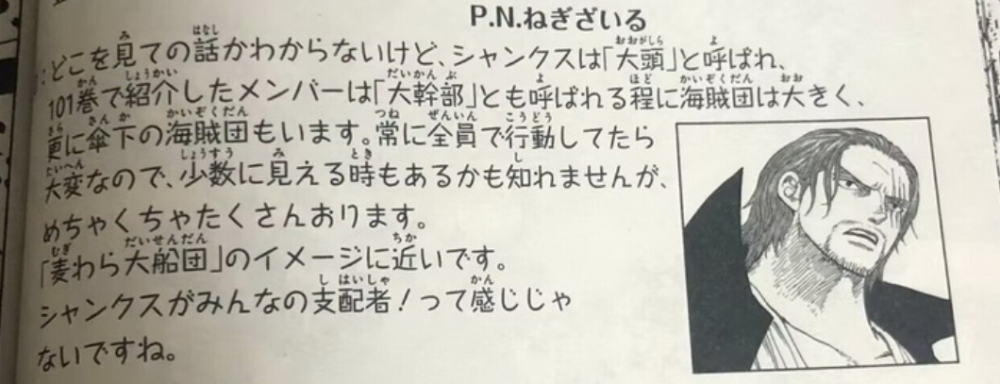 P.N.ねぎざいる
:どこを見ての話かわからないけど、シャンクスは「大頭」と呼ばれ、
101巻で紹介したメンバーは「大幹部」とも呼ばれる程に海賊団は大きく、
更に傘下の海賊団もいます。常に全員で行動してたら
大変なので、少数に見える時もあるかも知れませんが、
めちゃくちゃたくさんおります。
「麦わら大船団」のイメージに近いです。
シャンクスがみんなの支配者!って感じじゃ
ないですね。